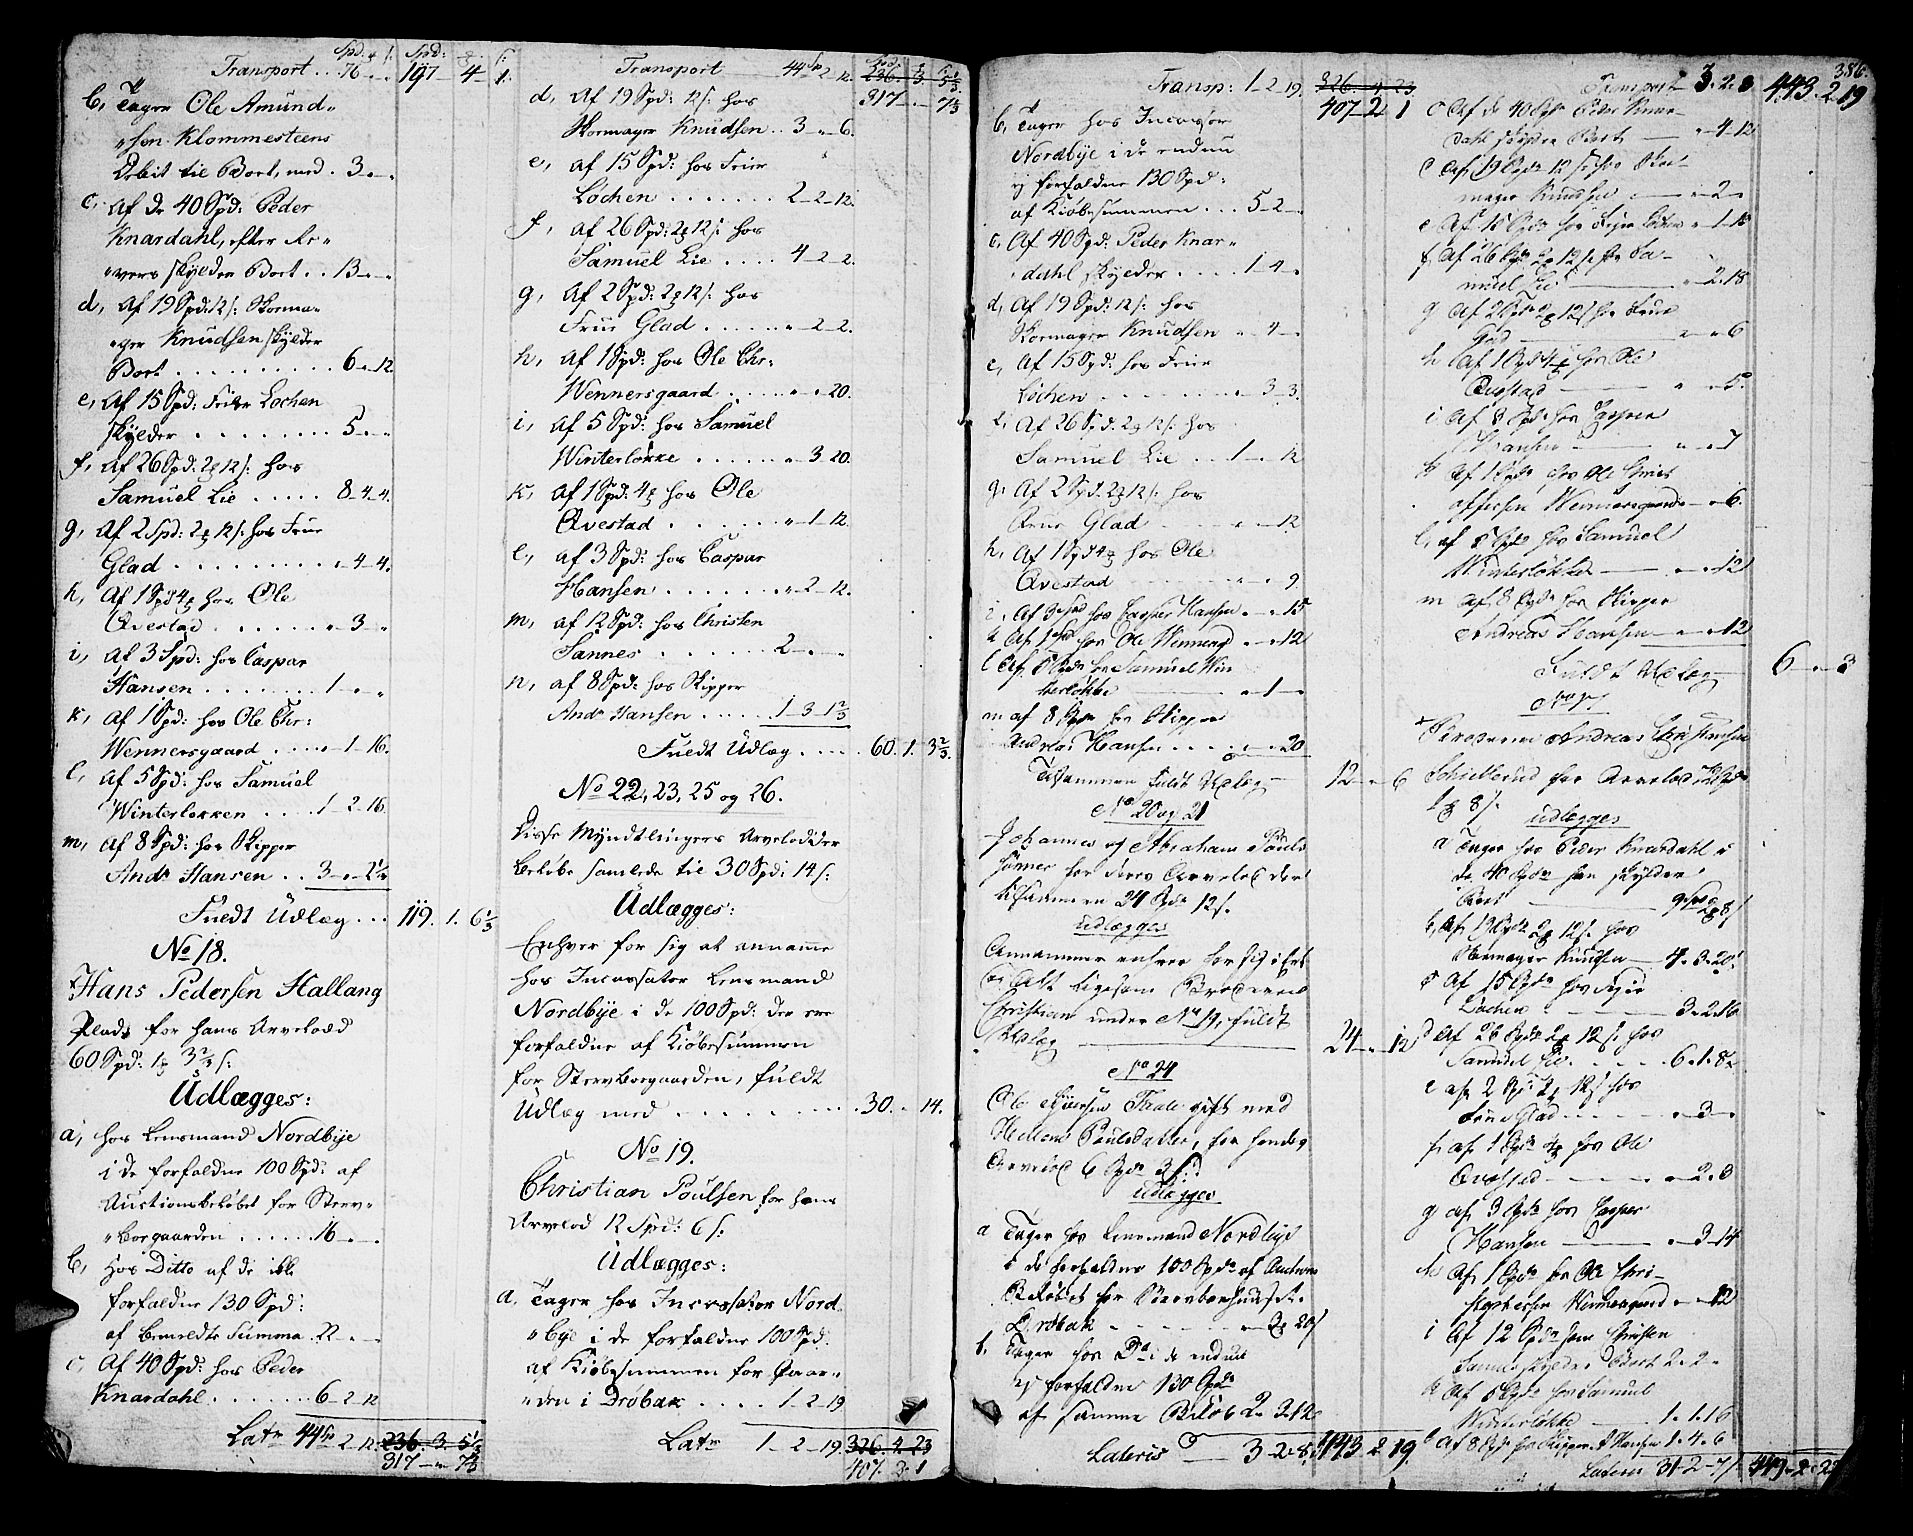 Transport .. 76 " " 197 4 1.
b, Tager Ole Amund"
"sen Klommesteens
Debit til Boet, med . 3 " "
c, Af de 40 Spd: Peder
Knardahl, efter Re"
"vers skylder Boet .. 13 " "
d, Af 19 Spd: 12 s: Skorma"
"ger Knudsen skylder
Boet .......... 6 " 12.
e, Af 15 Spd: Feier Lochen
skylder ........ 5 " "
f, Af 26 Spd: 2 12 s: hos
Samuel Lie ..... 8 4 4.
g, Af 2 Spd: 2 12 s: hos Frue
Glad .......... " 4 4.
h, Af 1 Spd 4 hos Ole
Qvestad ....... " 3 "
i, Af 3 Spd: hos Caspar
Hansen ........ 1 " "
k, Af 1 Spd: hos Ole Chr:
Wennersgaard .... " 1 16.
l, Af 5 Spd: hos Samuel
Winterlokken .... 1 2 16.
m, Af 8 Spd: hos Skipper
Andr Hansen .. 3
Fuldt Udlæg ... 119. 1. 6 1/3
No 18.
Hans Pedersen Hallang
Plads for hans Arvelodd
60 Spd: 1 3 2/3 s:
Udlægges:
a, hos Lensmand Nordbye
i de forfaldne 100 Spd: af
Auctionsbeløbet for Sterv"
"borgaarden ...... 16 " "
b, hos Ditto af de ikke
forfaldne 130 Spd:
af bemeldte Summa . 22 " "
c, Af 40 Spd: hos Peder
Knardahl ....... 6 2 12
Latr 44 2 12. 236. 3. 5 1/3
317 " 7 1/3
Transport 44 2 12. 236. 3. 5 1/3.
317 " 7 1/3
d, Af 19 Spd: 12 s: hos
Skormager Knudsen .. 3 " 6.
e, af 15 Spd: hos Feier
Lochen ....... 2 2 12.
f, af 26 Spd: 2 12 s: hos
Samuel Lie .... 4 2 2.
g, Af 2 Spd: 2 12 s: hos
Frue Glad ...... " 2 2.
h, af 1 Spd: hos Ole Chr:
Wennersgaard ..... " " 20.
i, af 5 Spd: hos Samuel
Winterlokke ...... " 3 20.
k, af 1 Spd: 4 hos Ole
Qvestad ....... " 1 12.
l, af 3 Spd: hos Caspar
Hansen ....... " 2 12.
m, af 12 Spd: hos Christen
Sannes ....... 2 " "
n, af 8 Spd: hos Skipper
Andr Hansen ..... 1 3 1 2/3
Fuldt Udlæg ..... 60. 1. 3 2/3.
No 22, 23, 25 og 26.
Disse Myndtlingers Arvelodder
beløbe samlede til 30 Spd: 14 s:
Udlægges:
Enhver for sig at annamme
hos Incassator Lensmand
Nordbye i de 100 Spd: der ere
forfaldne af Kiøbesummen
for Stervborgaarden, fuldt
Udlæg med .......... 30. " 14.
No 19.
Christian Poulsen for hans
Arvelod 12 Spd: 6 s:
Udlægges:
a. Tager hos Incassator Nord"
"bye i de forfaldne 100 Spd:
af Kiøbesummen for Gaar"
"den i Drøbak .... 1 2 19
Latr 1 2 19. 326. 4. 23
407. 2. 1
Transp: 1 2 19. 326. 4. 23
407 2 1
b, Tager hos Incassator
Nordbye i de endnu
ey forfaldne 130 Spd:
af Kiøbesummen ... 5 2 "
c, Af 40 Spd: Peder Knar"
dahl skylder .... 1 4 "
d, Af 19 Spd: 12 s: hos
Skormager Knudsen " 4 "
e, Af 15 Spd: hos Feier
Lochen ....... " 3 3.
f, Af 26 Spd: 2 12 s: hos
Samuel Lie .. 1 " 12
g. Af 2 Spd: 2 12 s: hos
Frue Glad " " 12
h, Af 1 Spd 4 hos Ole
Qvestad " " 9
i. Af 3 Spd hos Casper Hansen " " 15
k Af 1 Spd hos Ole Wennersg " " 12
l Af 5 Spd hos Samuel Win
terløkke " 1 "
m af 8 Spd hos Skipper
Andreas Hansen .... " " 20
Tilsammen fuldt Udlæg 12 " 6
No 20 og 21
Johannes og Abraham Pouls
sønner for deres Arvelodder
tilsammen 24 Spd 12 s.
udlægges
Annammer enhver for sig
ligesom Broderen
Christian under No 19, fuldt
Udlæg 24 " 12
No 24
Ole Faale gift med
Hellene Poulsdatter, for hendes
Arvelod 6 Spd 3 s:
udlægges
a Tager hos Lensmand Nordbye
i de forfaldne 100 Spd af Auctions
Beløbet for Stervboehuuset i
Drøbak ..... 20 s
b. Tager hos Do i de endnu
ey forfaldne 130 Spd
af samme Beløb 2. 2. 12
Lateris 3 2 8. 443 2 19.
386.
Transport 3. 2. 8 443. 2. 19
c Af de 40 Spd Peder Knar
dahl skylder Boet " 4. 12
d Af 19 Spd 12 s: hos Skor
mager Knudsen " 2 "
e Af 15 Spd hos Feier Lochen " 1. 18
f Af 26 Spd 2 12 s hos Sa
muel Lie " 2. 18
g Af 2 Spd 2 12 s hos Frue
Glad " " 6
h Af 1 Spd 4 hos Ole
Qvestad " " 5.
i Af 3 Spd hos Casper
Hansen " " 7
k Af 1 Spd hos Ole Christ
offersen Wennersgaard " " 6.
l, af 5 Spd hos Samuel
Winterløkke " " 12
m af 8 Spd hos Skipper
Andreas Hansen " " 12
Fuldt Udlæg 6 " 3
Andreas Christensen
for Arvelod
1 8 s.
udlægges
a Tager hos Peder Knardahl i
de 40 Spd han skylder
Boet 9
b, Af 19 Spd 2 12 s. hos
Skormager Knudsen 4. 3. 20
c Af 15 Spd hos Feier
Lochen 3. 2. 16
d Af 26 Spd 2 12 s hos
Samuel Lie .... 6. 1. 8
e af 2 Spd 2 12 s hos
Frue Glad " 3 "
f af 1 Spd 4 hos Ole
Qvestad " 2. 8
g af 3 Spd hos Casper
Hansen " 3 14
h Af 1 Spd hos Ole Chri
stophersen Wennersgaard " " 12
i Af 12 Spd som Christen
Sannes skylder Boet 2. 2.
k Af 5 Spd hos Samuel
Winterløkke 1. 1. 16
l Af 8 Spd hos Skipper A Hansen 1. 4. 6
Lateris 31 2 7